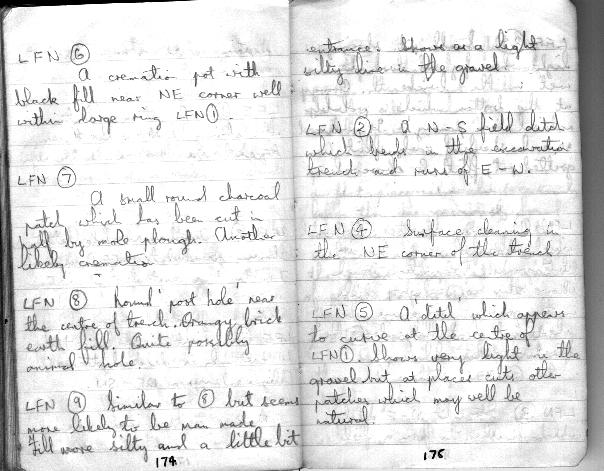 LFN ⑥
A cremation pot with
black fill near NE corner well
within large ring LFN ①.
LFN ⑦
A small round charcoal
patch which has been cut in
half by mole plough. Another
likely cremation
LFN ⑧ Round 'post hole' near
the centre of trench. Orangy brick
earth fill. Quite possibly
animal hole.
LFN ⑨ Similar to ⑧ but seems
more likely to be man made
Fill more silty and a little bit
174
entrance. Shows as a light
silty line in the gravel.
LFN ② A N-S field ditch
which bends in the excavation
trench and runs off E-W.
LFN ④ Surface cleaning in
the NE corner of the trench
LFN ⑤ A 'ditch' which appears
to curve at the centre of
LFN ①. Shows very light in the
gravel but at places cuts other
patches which may well be
natural.
175